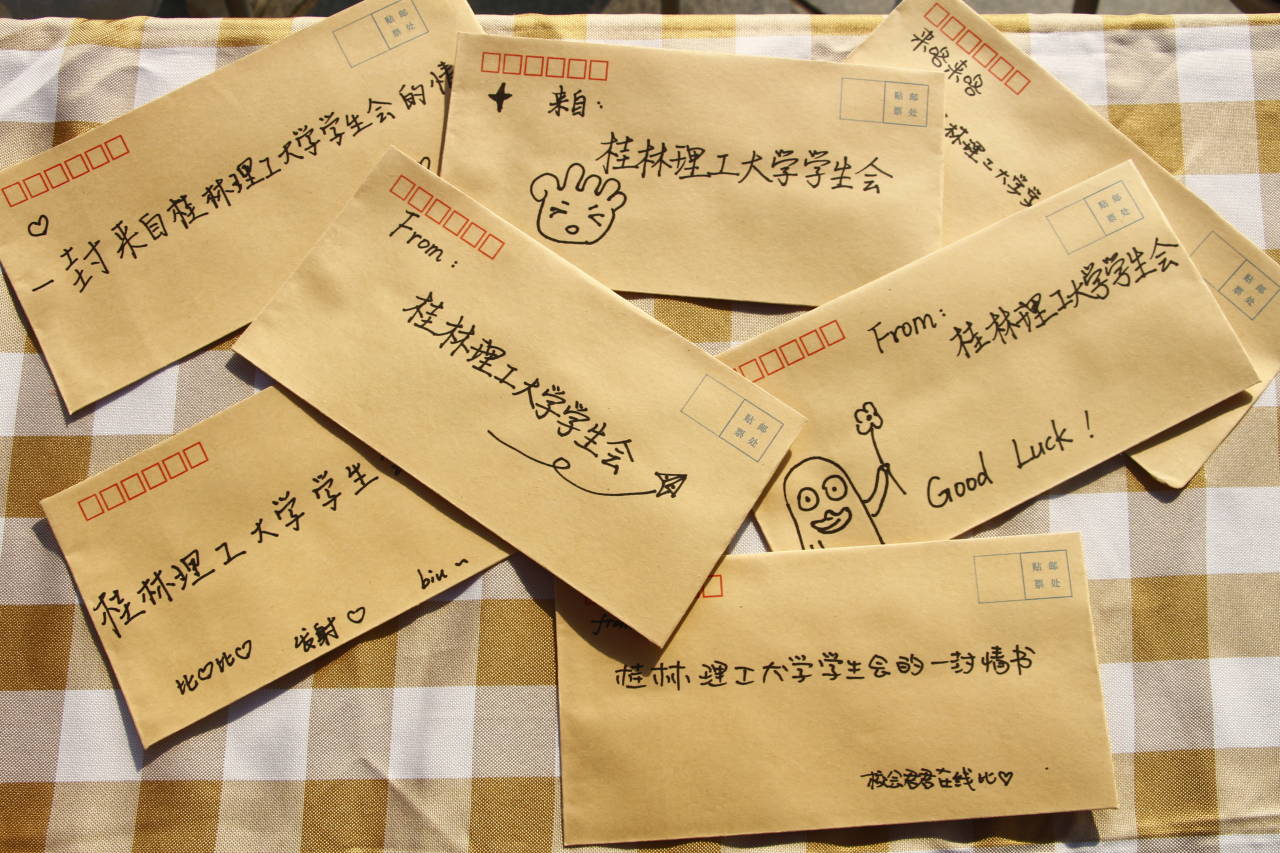 贴 邮
票 处
一封来自桂林理工大学学生会的情
贴 邮
票 处
来自:
桂林理工大学学生会
来咯来咯
林理工大学学
贴 邮
票 处
From:
桂林理工大学学生会
贴 邮
票 处
贴 邮
票 处
From:
桂林理工大学学生会
Good Luck!
桂林理工大学学生
biu~
比♡比♡ 发射♡
贴 邮
票 处
桂林理工大学学生会的一封情书
校会君君在线比♡